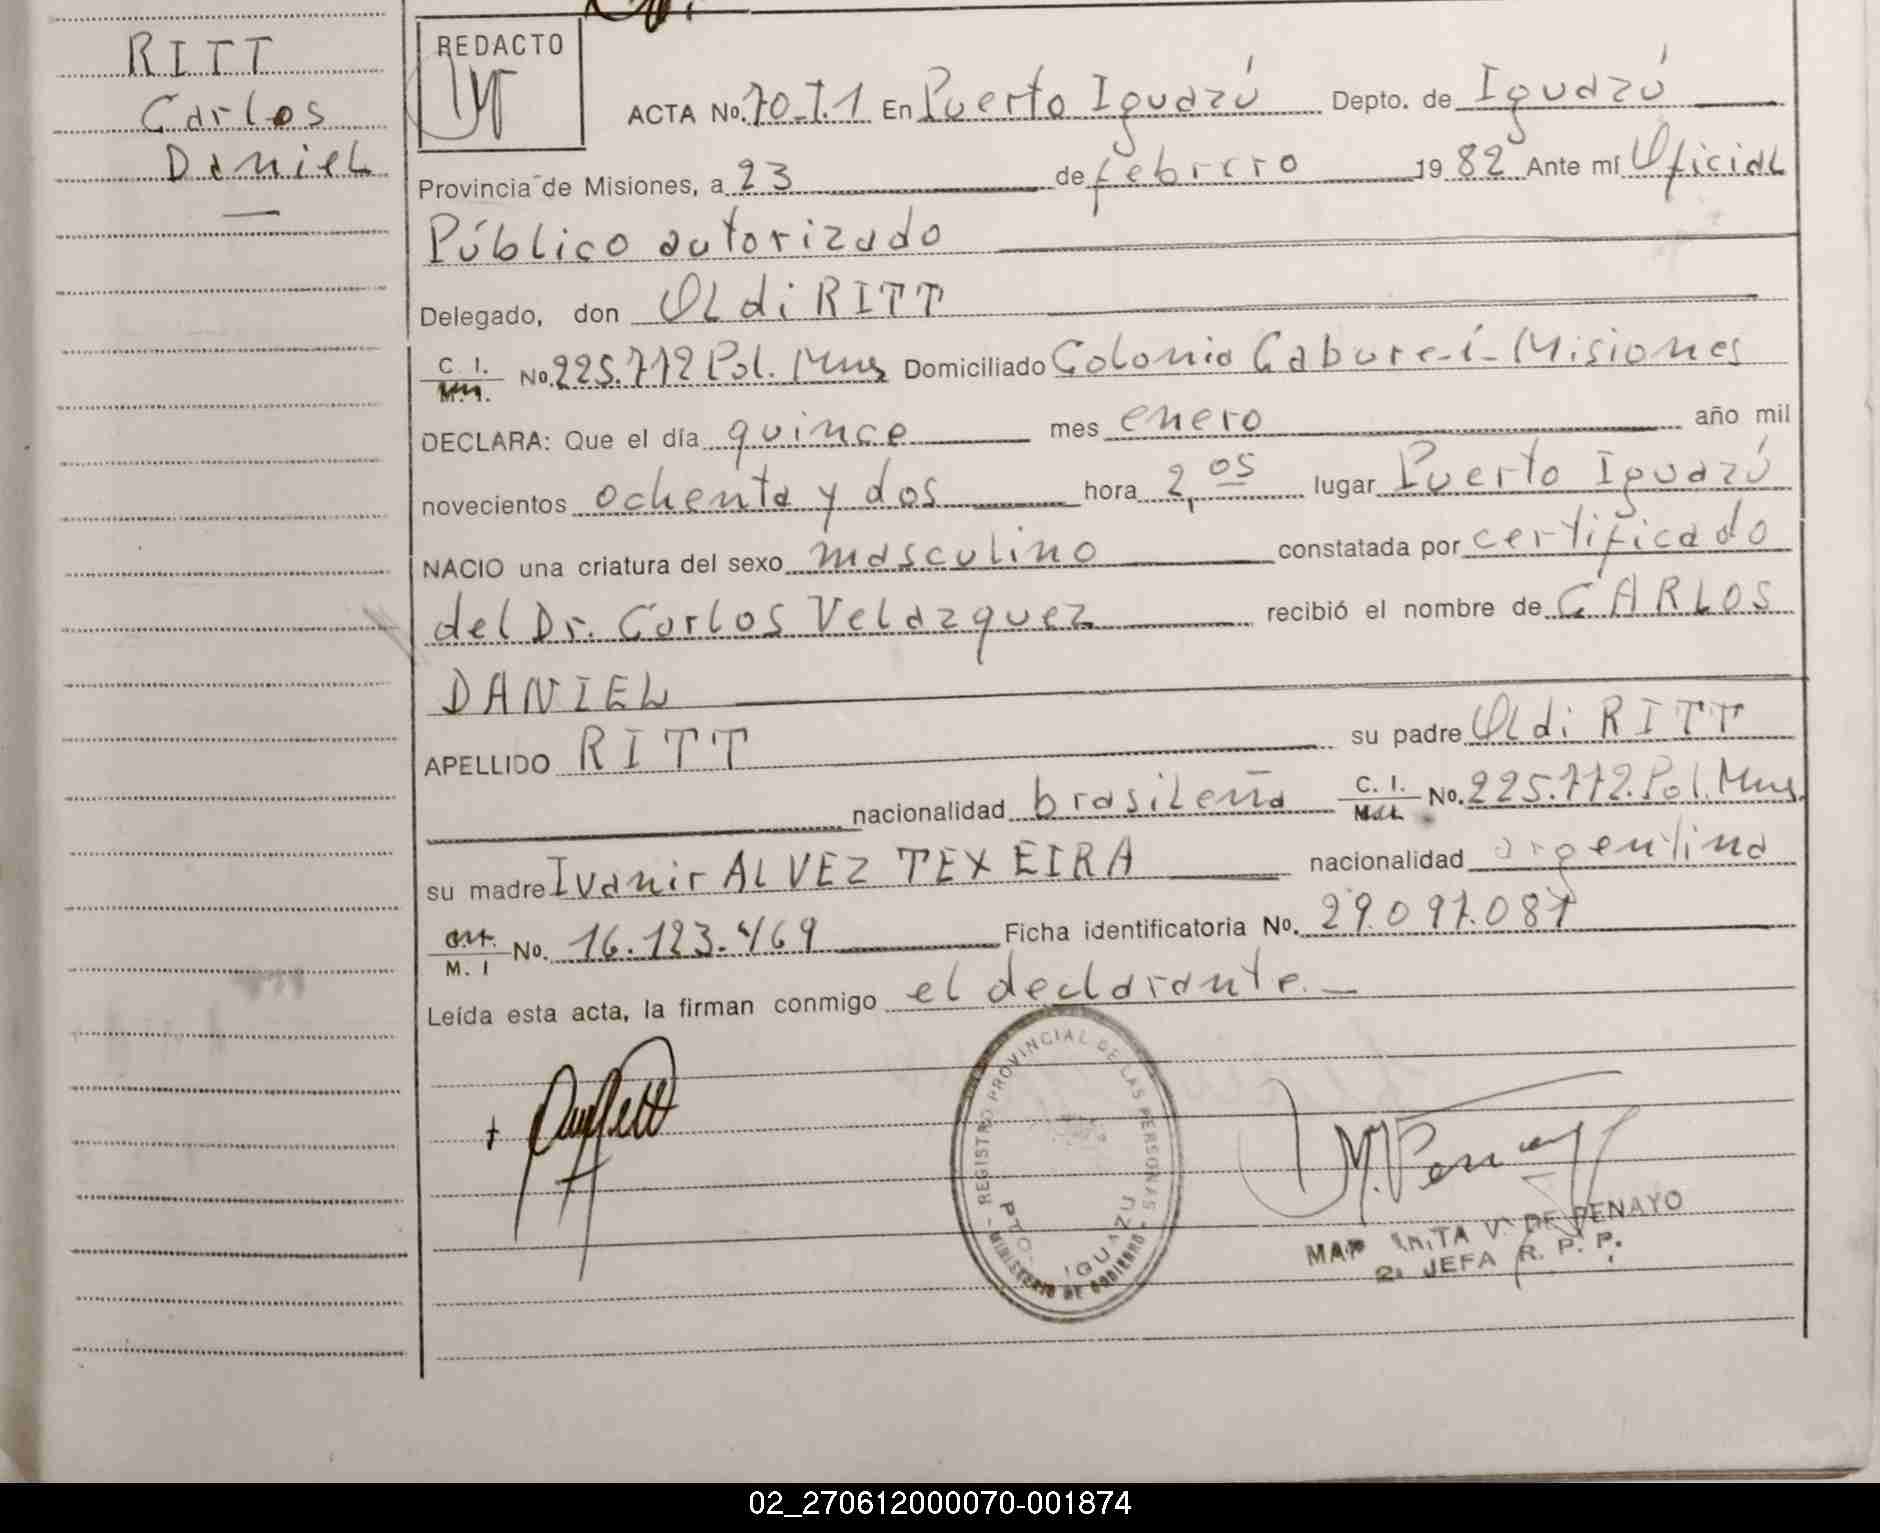 RITT
Carlos
Daniel
REDACTO
ACTA No. 70-T.1 En Puerto Iguazú Depto. de Iguazú
Provincia de Misiones, a 23 de febrero 1982 Ante mí Oficial
Público autorizado
Delegado, don Oldi RITT
C. I. No. 225.712 Pol. Mnes Domiciliado Colonia Cabure-í-Misiones
DECLARA: Que el día quince mes enero año mil
novecientos ochenta y dos hora 2,05 lugar Puerto Iguazú
NACIO una criatura del sexo masculino constatada por certificado
del Dr. Carlos Velazquez recibió el nombre de CARLOS
DANIEL
APELLIDO RITT su padre Oldi RITT
nacionalidad brasileña C. I. No. 225.712.Pol.Mnes
su madre Ivanir ALVEZ TEXEIRA nacionalidad argentina
M. I No. 16.123.469 Ficha identificatoria No. 29.097.087
Leída esta acta, la firman conmigo el declarante.-
REGISTRO PROVINCIAL DE LAS PERSONAS
PTO. IGUAZU
MINISTERIO DE GOBIERNO
M. Penayo
V. DE PENAYO
2. JEFA R. P. P.
02_270612000070-001874